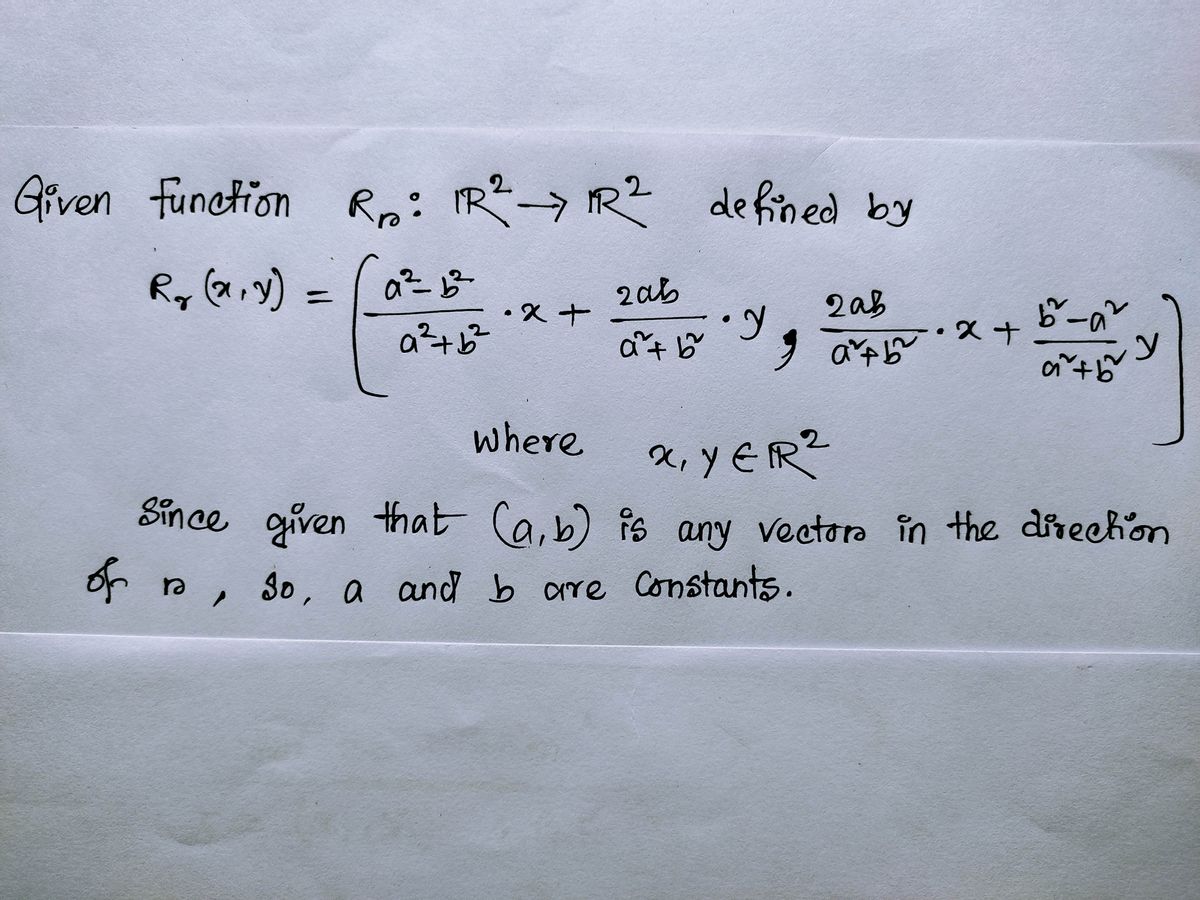 Given function R_r : ℝ² → ℝ² defined by
R_r (x, y) = [ (a² - b²)/(a² + b²) · x + 2ab/(a² + b²) · y , 2ab/(a² + b²) · x + (b² - a²)/(a² + b²) y ]
where x, y ∈ ℝ²
Since given that (a, b) is any vector in the direction
of r, so, a and b are Constants.